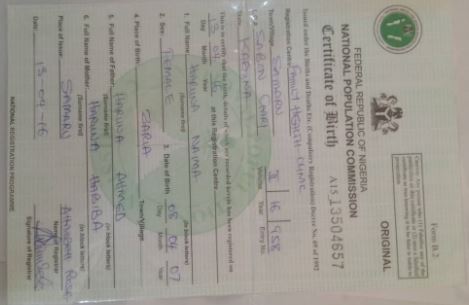 Form B.2
FEDERAL REPUBLIC OF NIGERIA
NATIONAL POPULATION COMMISSION
ORIGINAL
Certificate of Birth
A15 13504657
Issued under the Births and Deaths Etc. (Compulsory Registration) Decree No. 69 of 1992
Registration Centre FAMILY HEALTH CLINIC
Town/Village SAMARU II 16 958
Volume Year Entry No.
LGA SABON GARI
State KADUNA
This is to certify that the birth, details of which are recorded herein has been registered on
13 04 16 at this Registration Centre
Day Month Year
1. Full Name HARUNA NAIMA
(Surname first) (in block letters)
2. Sex: FEMALE 3. Date of Birth 08 04 07
Day Month Year
4. Place of Birth: ZARIA
Town/Village
5. Full Name of Father: HARUNA AHMED
(Surname first) (in block letters)
6. Full Name of Mother: HARUNA HABIBA
(Surname first) (in block letters)
Place of Issue: SAMARU
Name of Registrar
Date: 13-04-16
Signature of Registrar
NATIONAL REGISTRATION PROGRAMME